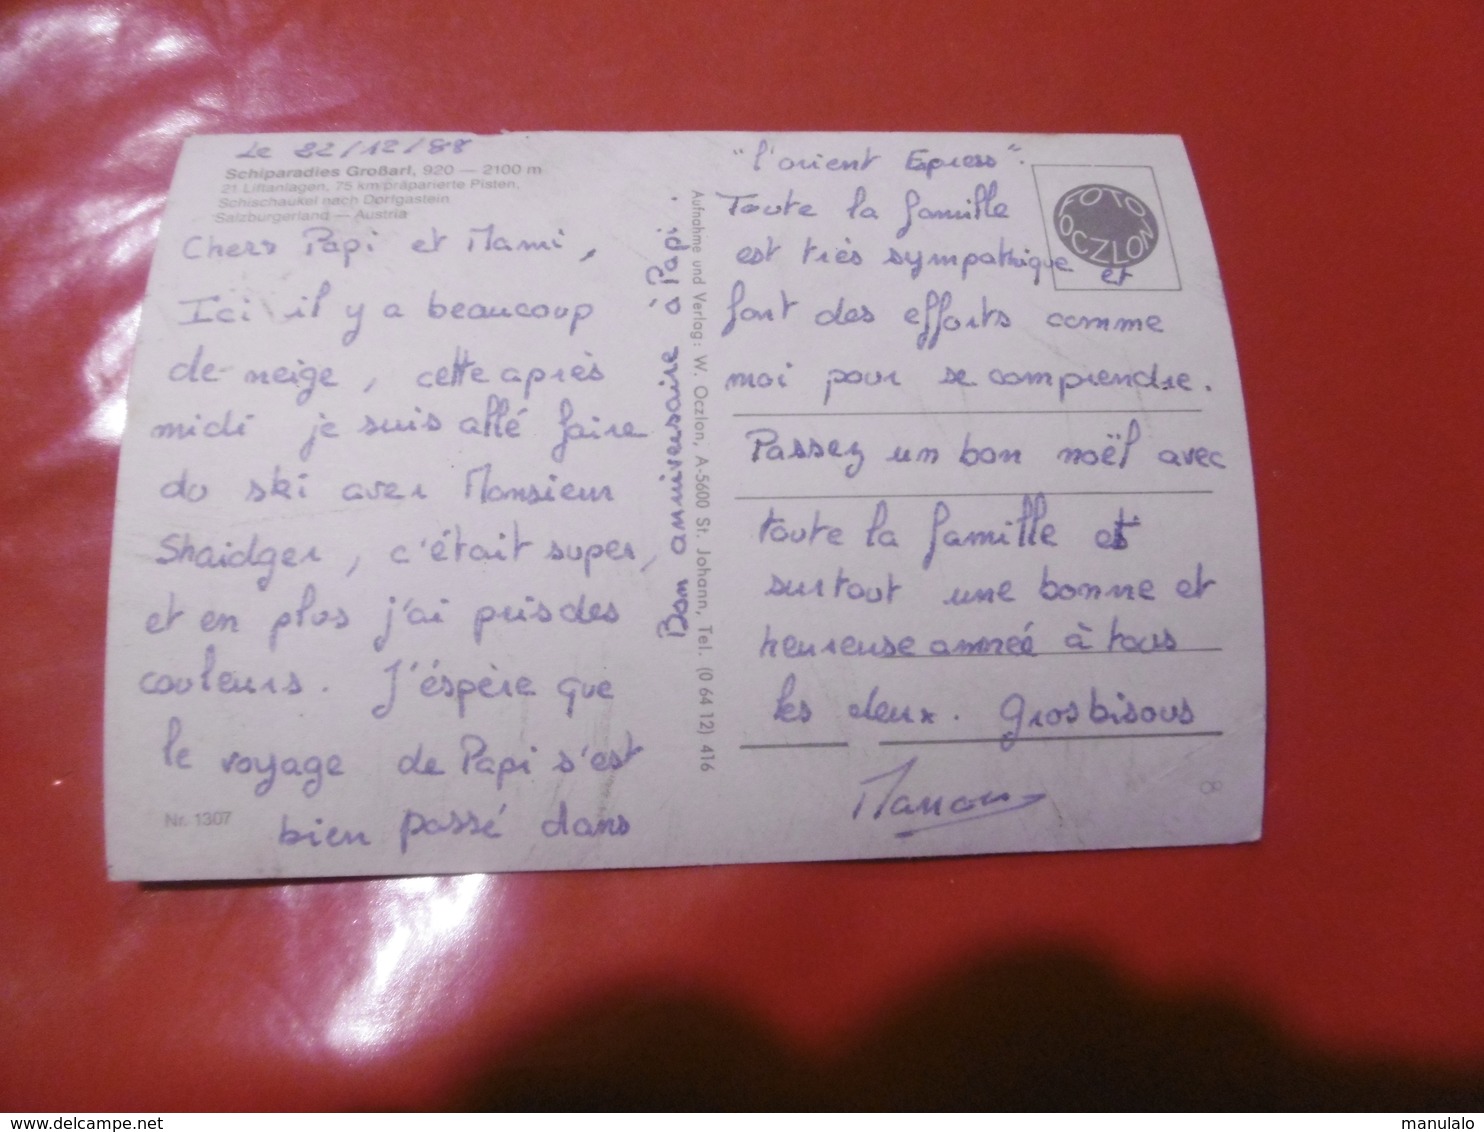 Le 22/12/88
Schiparadies Großarl, 920 — 2100 m
21 Liftanlagen, 75 km präparierte Pisten,
Schischaukel nach Dorfgastein
Salzburgerland — Austria
Chers Papi et Mami,
Ici il y a beaucoup
de neige, cette après
midi je suis allé faire
du ski avec Monsieur
Shaidger, c'était super,
et en plus j'ai pris des
couleurs. J'éspère que
le voyage de Papi s'est
bien passé dans
Nr. 1307
Bon anniversaire à Papi.
Aufnahme und Verlag: W. Oczlon, A-5600 St. Johann, Tel. (0 64 12) 416
"l'orient Epress".
Toute la famille
est très sympathique et
font des efforts comme
moi pour se comprendre.
Passez un bon noël avec
toute la famille et
surtout une bonne et
heureuse année à tous
les deux. Gros bisous
FOTO
OCZLON
manulalo